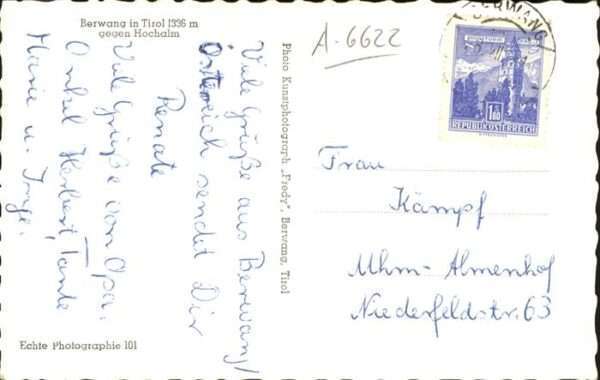 Berwang in Tirol 1336 m
gegen Hochalm
Viele Grüße aus Berwang/
Österreich sendet Dir
Renate
Viele Grüße von Opa,
Onkel Herbert, Tante
Marie u. Inge.
Echte Photographie 101
Photo Kunstphotograph „Fredy", Berwang, Tirol
A-6622
BERWANG
1.80
REPUBLIK ÖSTERREICH
Frau
Kämpf
Mhm-Almenhof
Niederfeldstr. 63